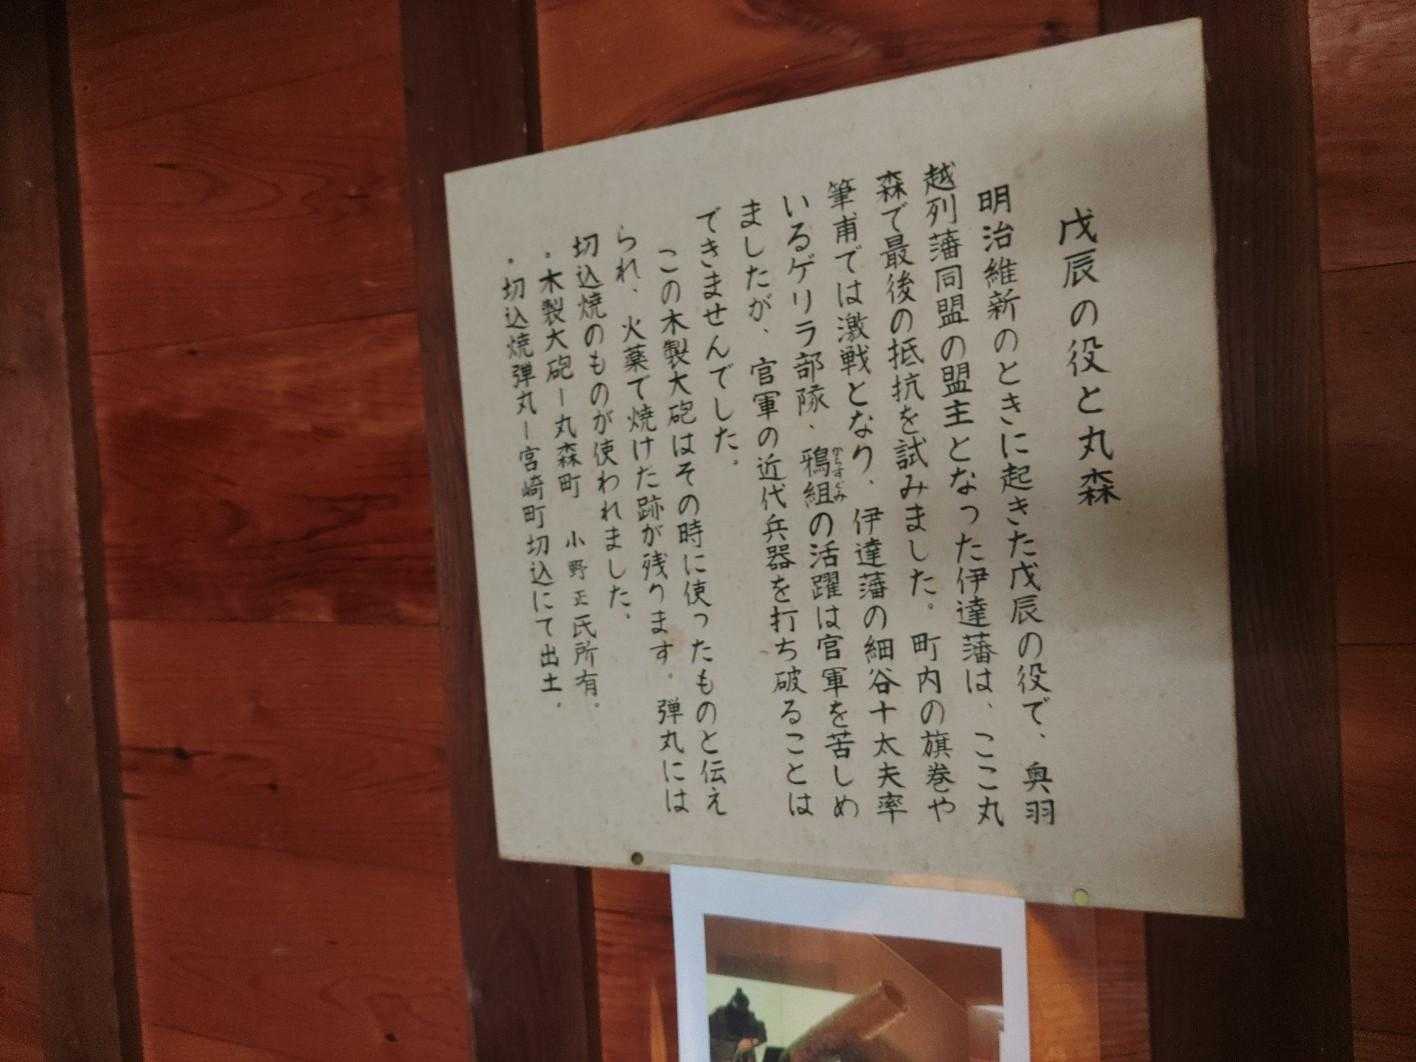 戊辰の役と丸森
明治維新のときに起きた戊辰の役で、奥羽
越列藩同盟の盟主となった伊達藩は、ここ丸
森で最後の抵抗を試みました。町内の旗巻や
筆甫では激戦となり、伊達藩の細谷十太夫率
いるゲリラ部隊、鴉組の活躍は官軍を苦しめ
からすぐみ
ましたが、官軍の近代兵器を打ち破ることは
できませんでした。
この木製大砲はその時に使ったものと伝え
られ、火薬で焼けた跡が残ります。弾丸には
切込焼のものが使われました。
・木製大砲ー丸森町 小野正氏所有。
・切込焼弾丸ー宮崎町切込にて出土。